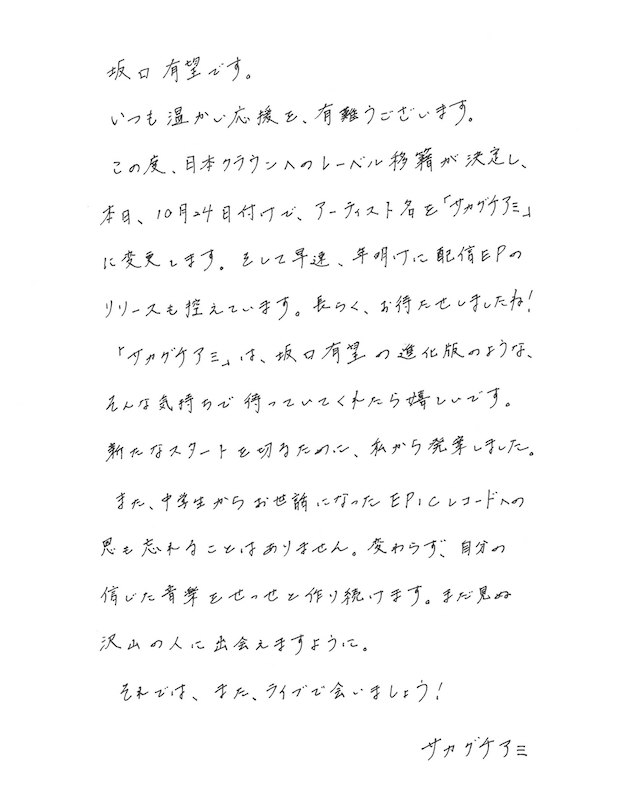 坂口有望です。
いつも温かい応援を、有難うございます。
この度、日本クラウンへのレーベル移籍が決定し、
本日、10月24日付けで、アーティスト名を「サカグケアミ」
に変更します。そして早速、年明けに配信EPの
リリースも控えています。長らく、お待たせしましたね!
「サカグケアミ」は、坂口有望の進化版のような、
そんな気持ちで待っていてくれたら嬉しいです。
新たなスタートを切るために、私から発案しました。
また、中学生からお世話になったEPICレコードへの
恩も忘れることはありません。変わらず、自分の
信じた音楽をせっせと作り続けます。まだ見ぬ
沢山の人に出会えますように。
それでは、また、ライブで会いましょう!
サカグケアミ